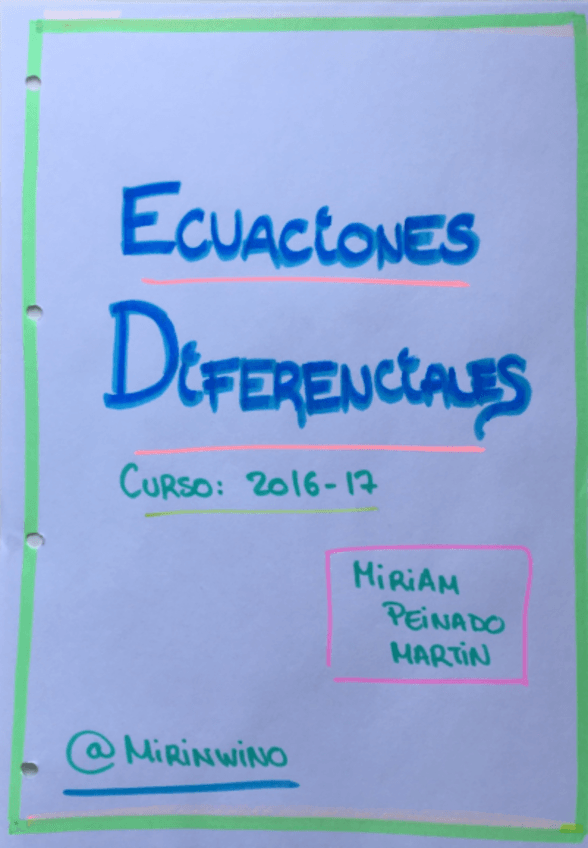 ECUACIONES
DIFERENCIALES
CURSO: 2016-17
MIRIAM
PEINADO
MARTIN
@MIRINWINO